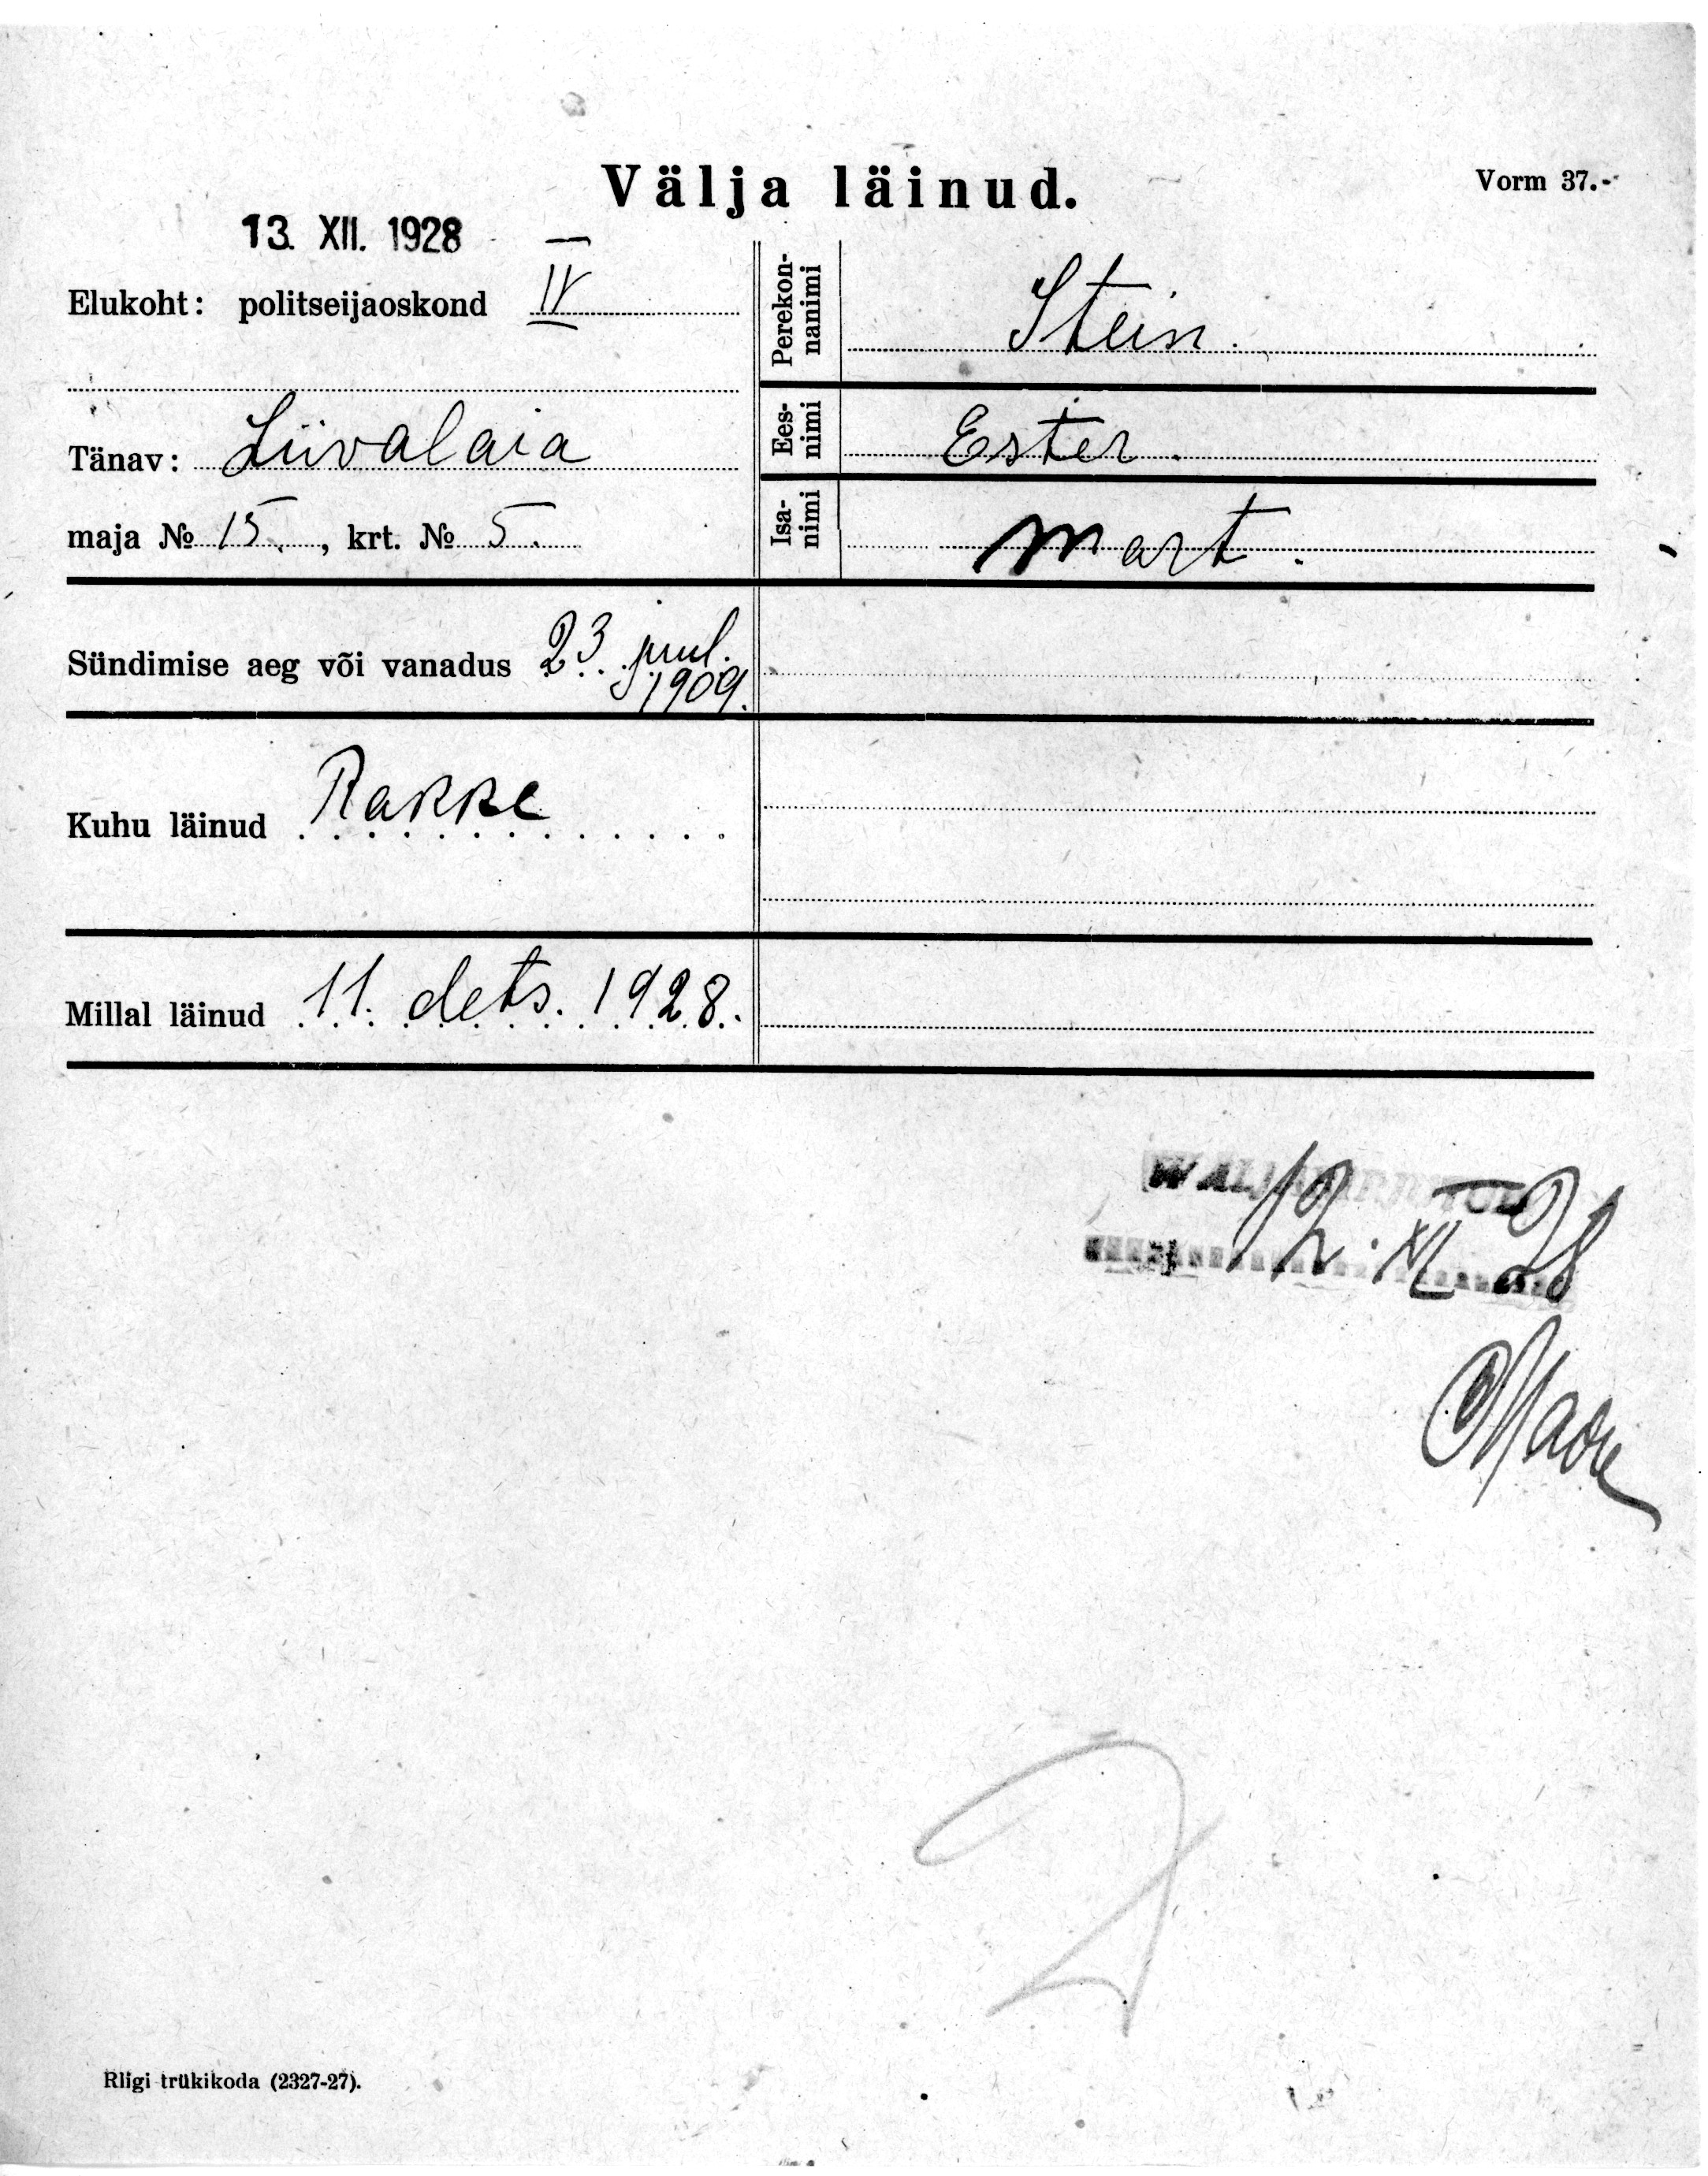 Välja läinud.
Vorm 37.-
13. XII. 1928
Elukoht: politseijaoskond IV
Tänav: Liivalaia
maja № 15., krt. № 5.
Perekon-
nanimi
Stein.
Ees-
nimi
Ester.
Isa-
nimi
Mart.
Sündimise aeg või vanadus 23. juul.
1909.
Kuhu läinud Rakke
Millal läinud 11. dets. 1928.
12. XII 28
Riigi trükikoda (2327-27).